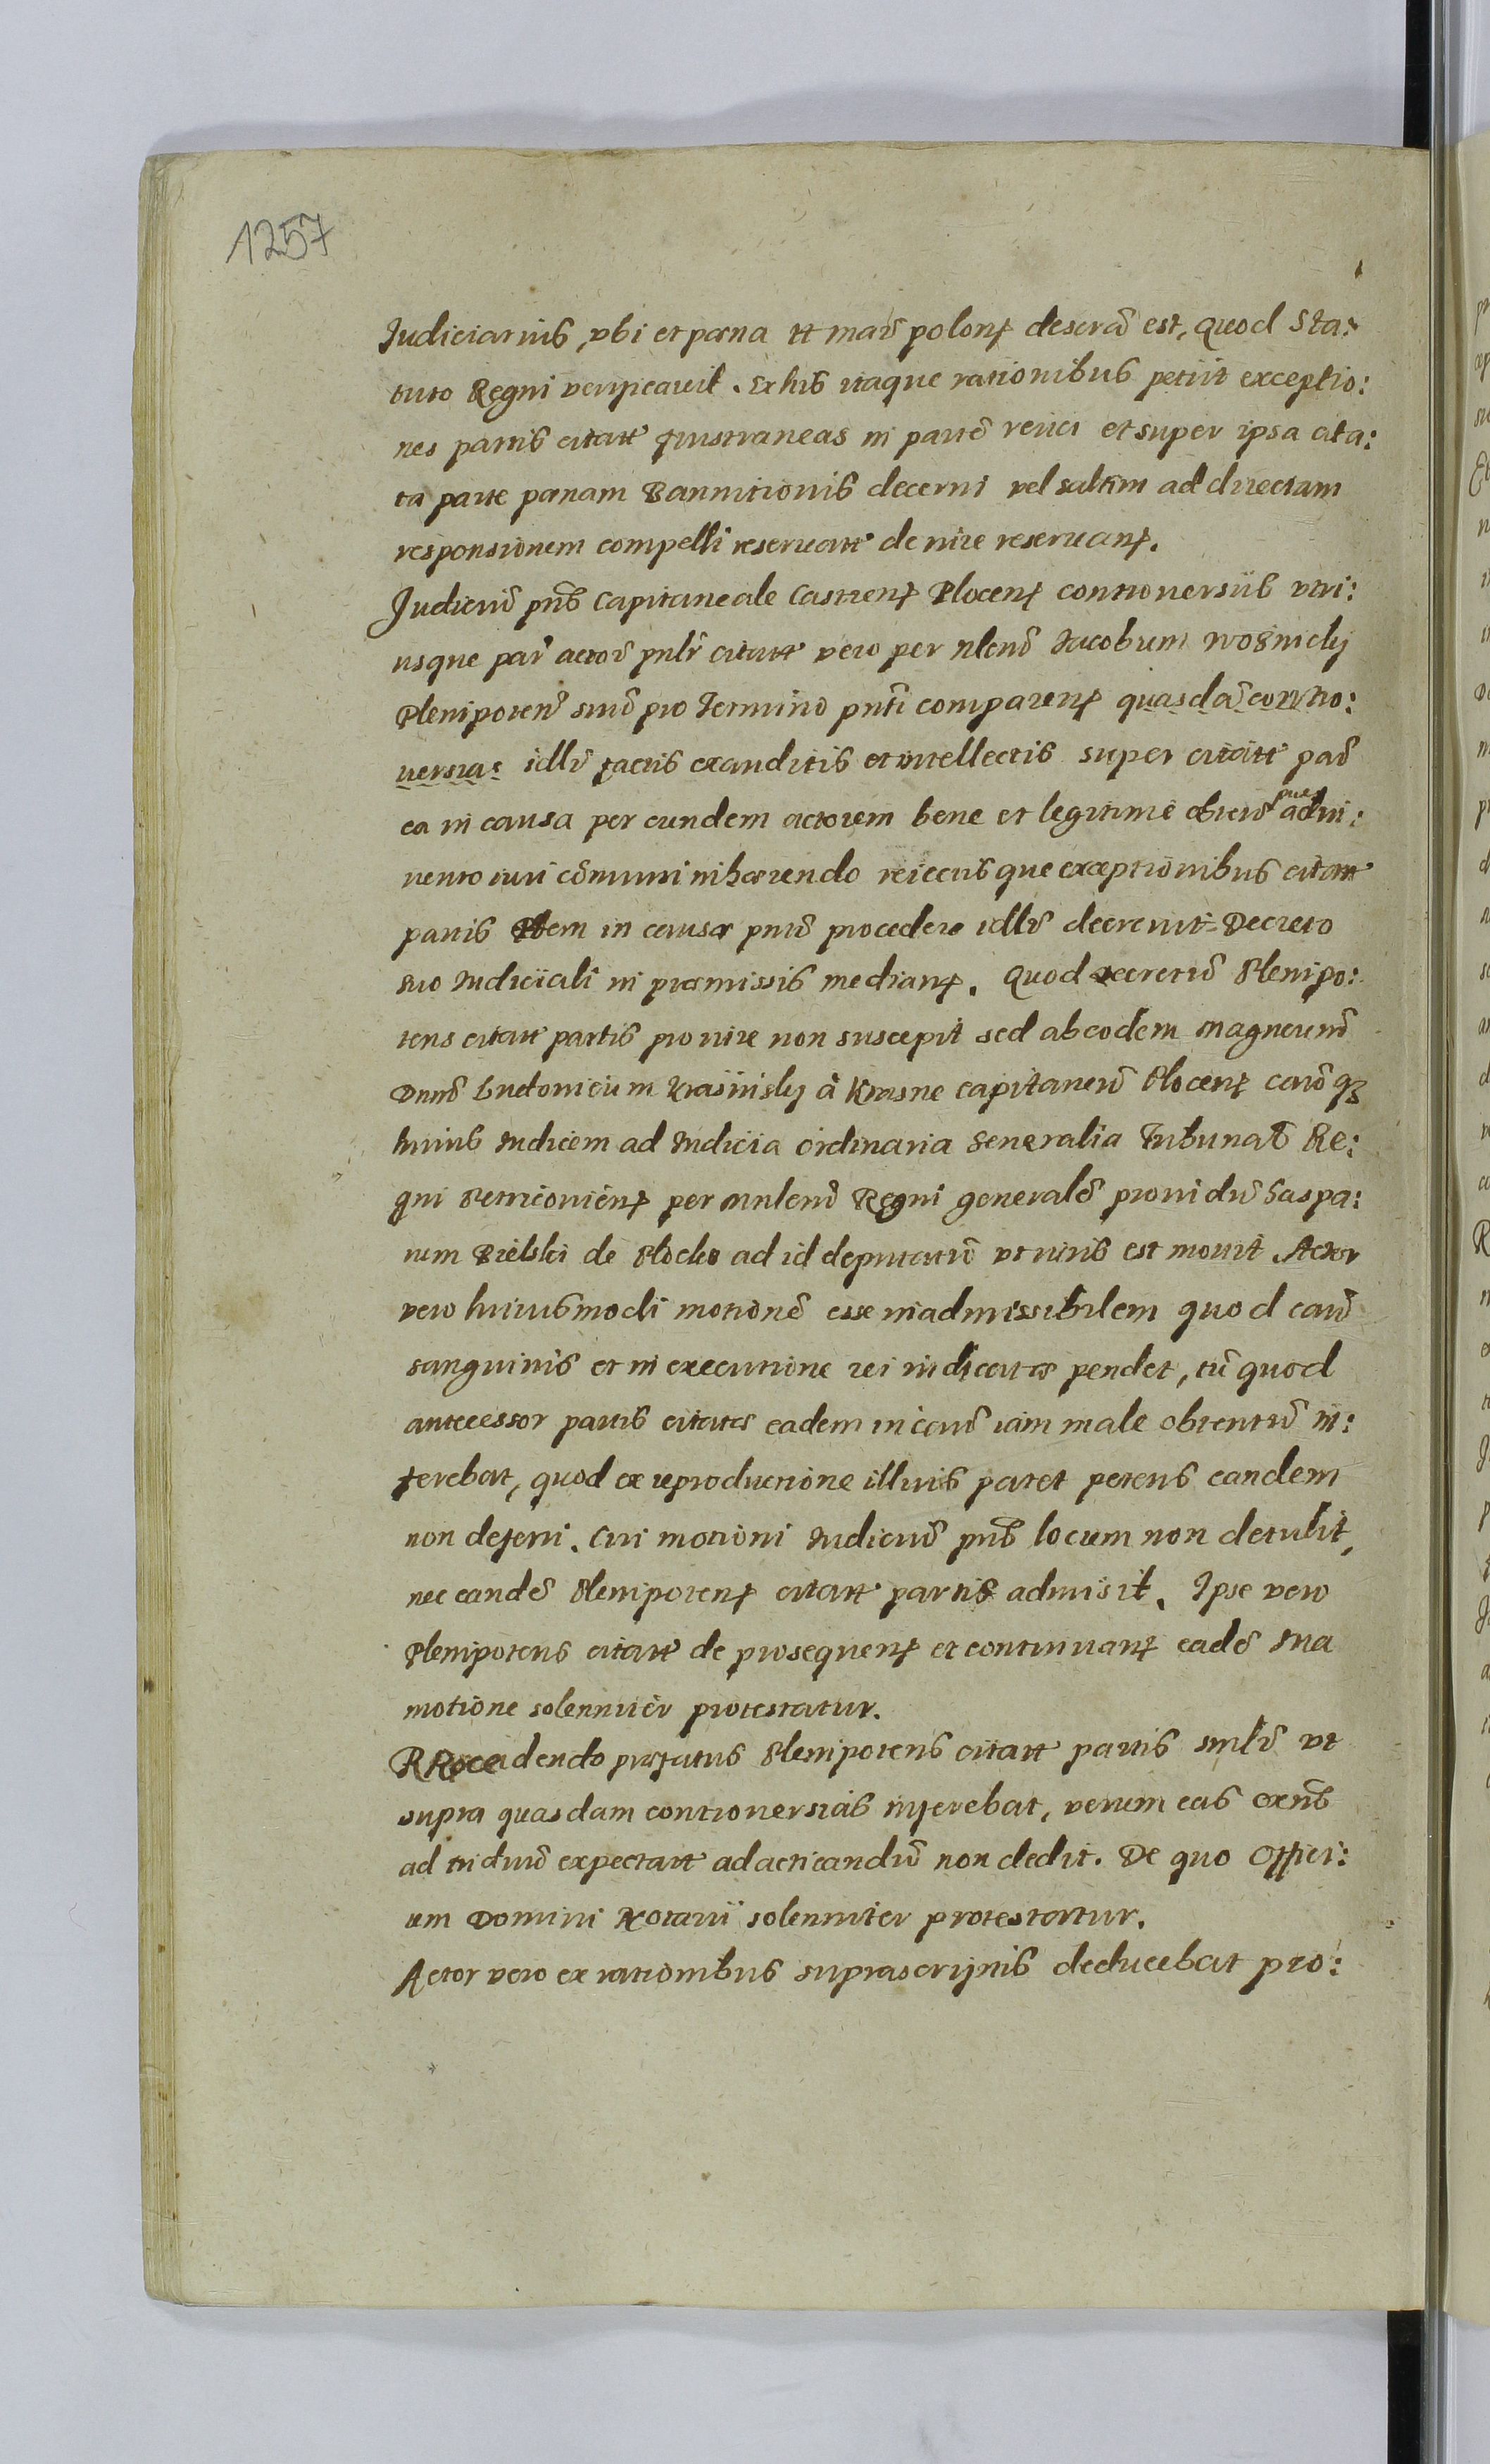 1257
Iudiciarius, vbi et pœna tt mār̄ polonꝭ descrā est, quod Sta:
tuto Regni verificavit. Ex his itaque rationibus petiit exceptio:
nes partis citatt frustraneas in partē reiici et super ipsa cita:
ta parte pœnam Bannitionis decerni vel saltim ad directam
responsionem compelli reservatt de iure reservanꝭ.
Judiciū pn̄s Capitaneale Castrenꝭ Plocenꝭ controversiis vtri:
usque par̄ actor̄ pnlr̄ citatt vero per nlem̄ Jacobum
Plenipoten̄ suū pro Termino pn̄ti comparenꝭ quasdā contro:
versias idlr̄ factis exauditis et intellectis super citatt par̄
ea in causa per eundem actorem bene et legitime obten̄ adin:
vento iuri cōmuni inhærendo reiectisque exceptionibus citatt
partis in causa pn̄ti procedere idlr̄ decrevit Decreto
suo Iudiciali in præmissis medianꝭ. Quod decretū Plenipo:
tens citatt partis pro iure non suscepit sed ab eodem Magneum̄
Dnm̄ Ludovicum Krasiński à Krasne Capitaneū Plocenꝭ caūqꝫ
huius Iudicem ad Iudicia ordinaria Generalia Tribunal̄ Re:
gni Petriconienꝭ per Mnlem̄ Regni generalē providū Gaspa:
rum Bielski de Plocko ad id deputatū vt iuris est movit. Actor
vero huiusmodi motionē esse inadmissibilem quod caū
sanguinis et in executione rei iudicatæ pendet, tū quod
antecessor partis citatæ eadem in caū iam male obtentū in:
ferebat, quod ex reproductione illius patet petens eandem
non deferri. Cui motioni Iudiciū pn̄s locum non detulit,
nec eandē Plenipotenꝭ citatt partis admisit. Ipse vero
Plenipotens citatt de prosequenꝭ et continuanꝭ eadē sua
motione solenniter protestatur.
præfatus Plenipotens citatt partis smlr̄ vt
supra quasdam controversias inferebat, verum eas
ad triduū expectatt ad acticandū non dedit. De quo Offici:
um Domini Notarii solenniter protestatur.
Actor vero ex rationibus suprascriptis deducebat pro: